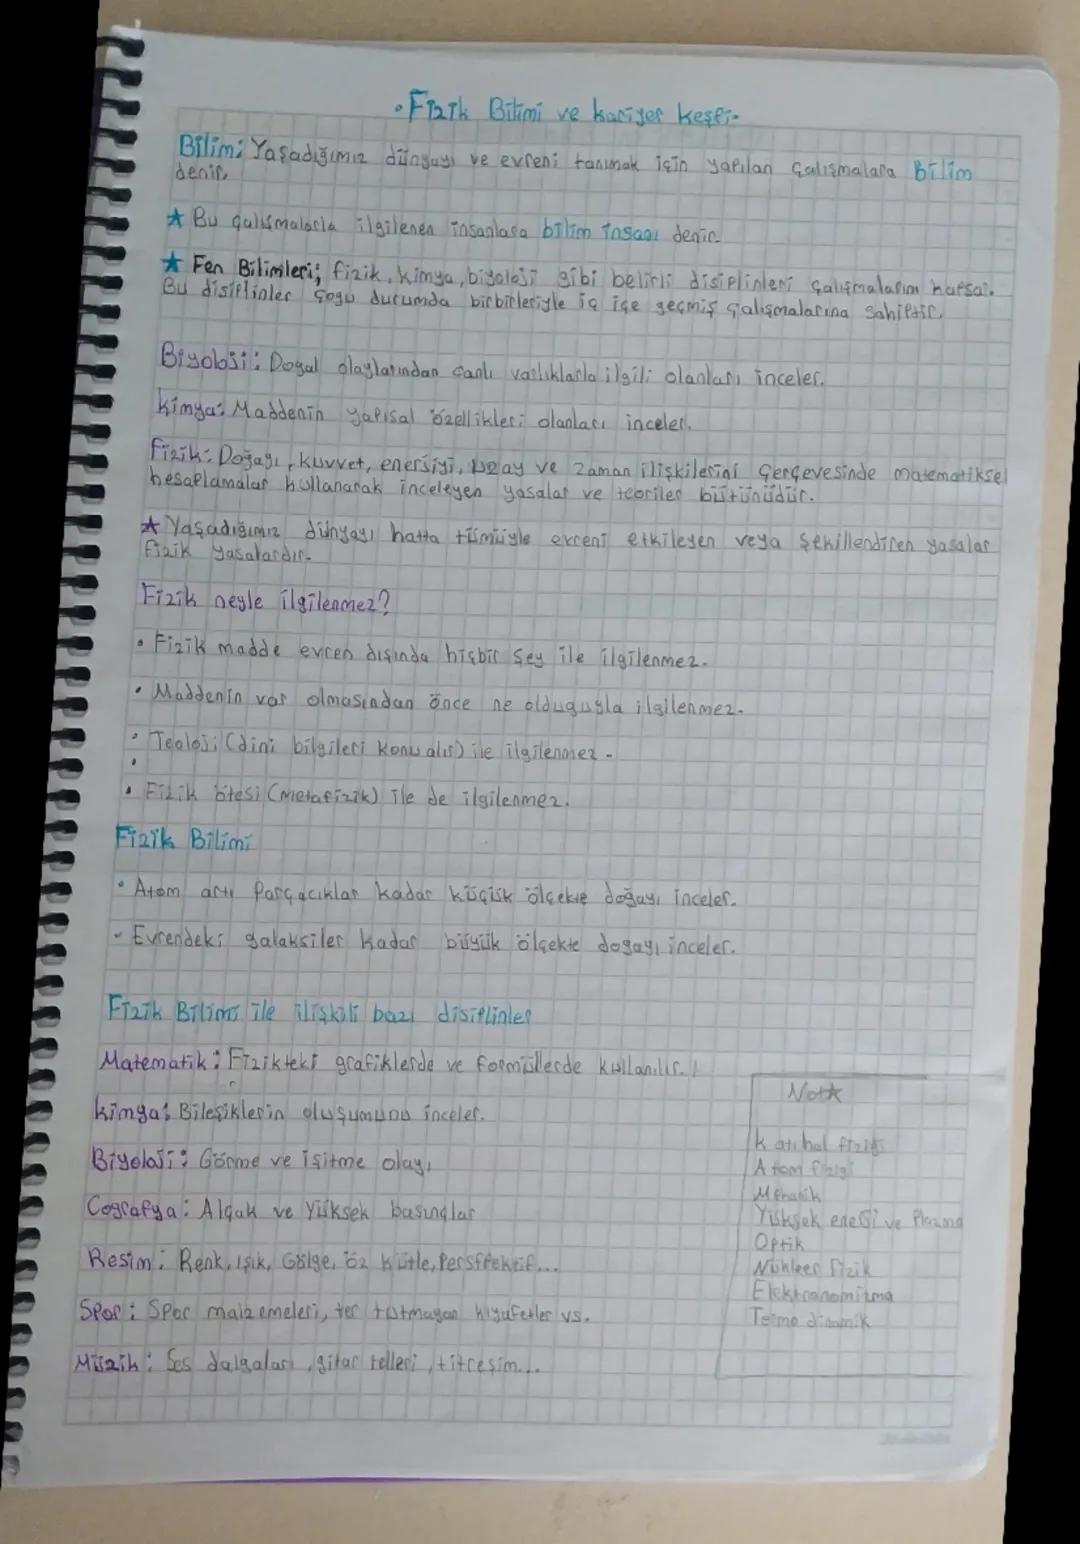 • Fizik Bilimi ve kariyer keşfi-
Bilim: Yaşadığımız dünyayı ve evreni tanımak için yapılan çalışmalara Bilim
denir.
★ Bu çalışmalarla ilgilenen insanlara bilim insanı denir.
★ Fen Bilimleri; fizik, kimya, biyoloji gibi belirli disiplinleri çalışmalarını kapsar.
Bu disiplinler çoğu durumda birbirleriyle iç içe geçmiş çalışmalarına sahiptir.
Biyoloji: Doğal olaylarından canlı varlıklarla ilgili olanları inceler.
Kimya: Maddenin yapısal özellikleri olanları inceler.
Fizik: Doğayı, kuvvet, enerjiyi, uzay ve zaman ilişkilerini çerçevesinde matematiksel
hesaplamalar kullanarak inceleyen yasalar ve teoriler bütünüdür.
★ Yaşadığımız dünyayı hatta tümüyle evreni etkileyen veya şekillendiren yasalar
fizik yasalardır.
Fizik neyle ilgilenmez?
• Fizik madde evren dışında hiçbir şey ile ilgilenmez.
• Maddenin var olmasından önce ne olduğuyla ilgilenmez.
• Teoloji (dini bilgileri konu alır) ile ilgilenmez -
• Fizik ötesi (metafizik) ile de ilgilenmez.
Fizik Bilimi
• Atom altı parçacıklar kadar küçük ölçekte doğayı inceler.
- Evrendeki galaksiler kadar büyük ölçekte doğayı inceler.
Fizik Bilimi ile ilişkili bazı disiplinler
Matematik: Fizikteki grafiklerde ve formüllerde kullanılır.
Kimya: Bileşiklerin oluşumunu inceler.
Biyoloji: Görme ve işitme olayı
Coğrafya: Alçak ve Yüksek basınçlar
Resim: Renk, ışık, Gölge, öz kütle, Perspektif...
Spor: Spor malzemeleri, ter tutmayan kıyafetler vs.
Müzik: Ses dalgaları, gitar telleri, titreşim...
Not★
Katıhal fiziği
Atom fiziği
Mekanik
Yüksek enerji ve Plazma
Optik
Nükleer fizik
Termo dinamik